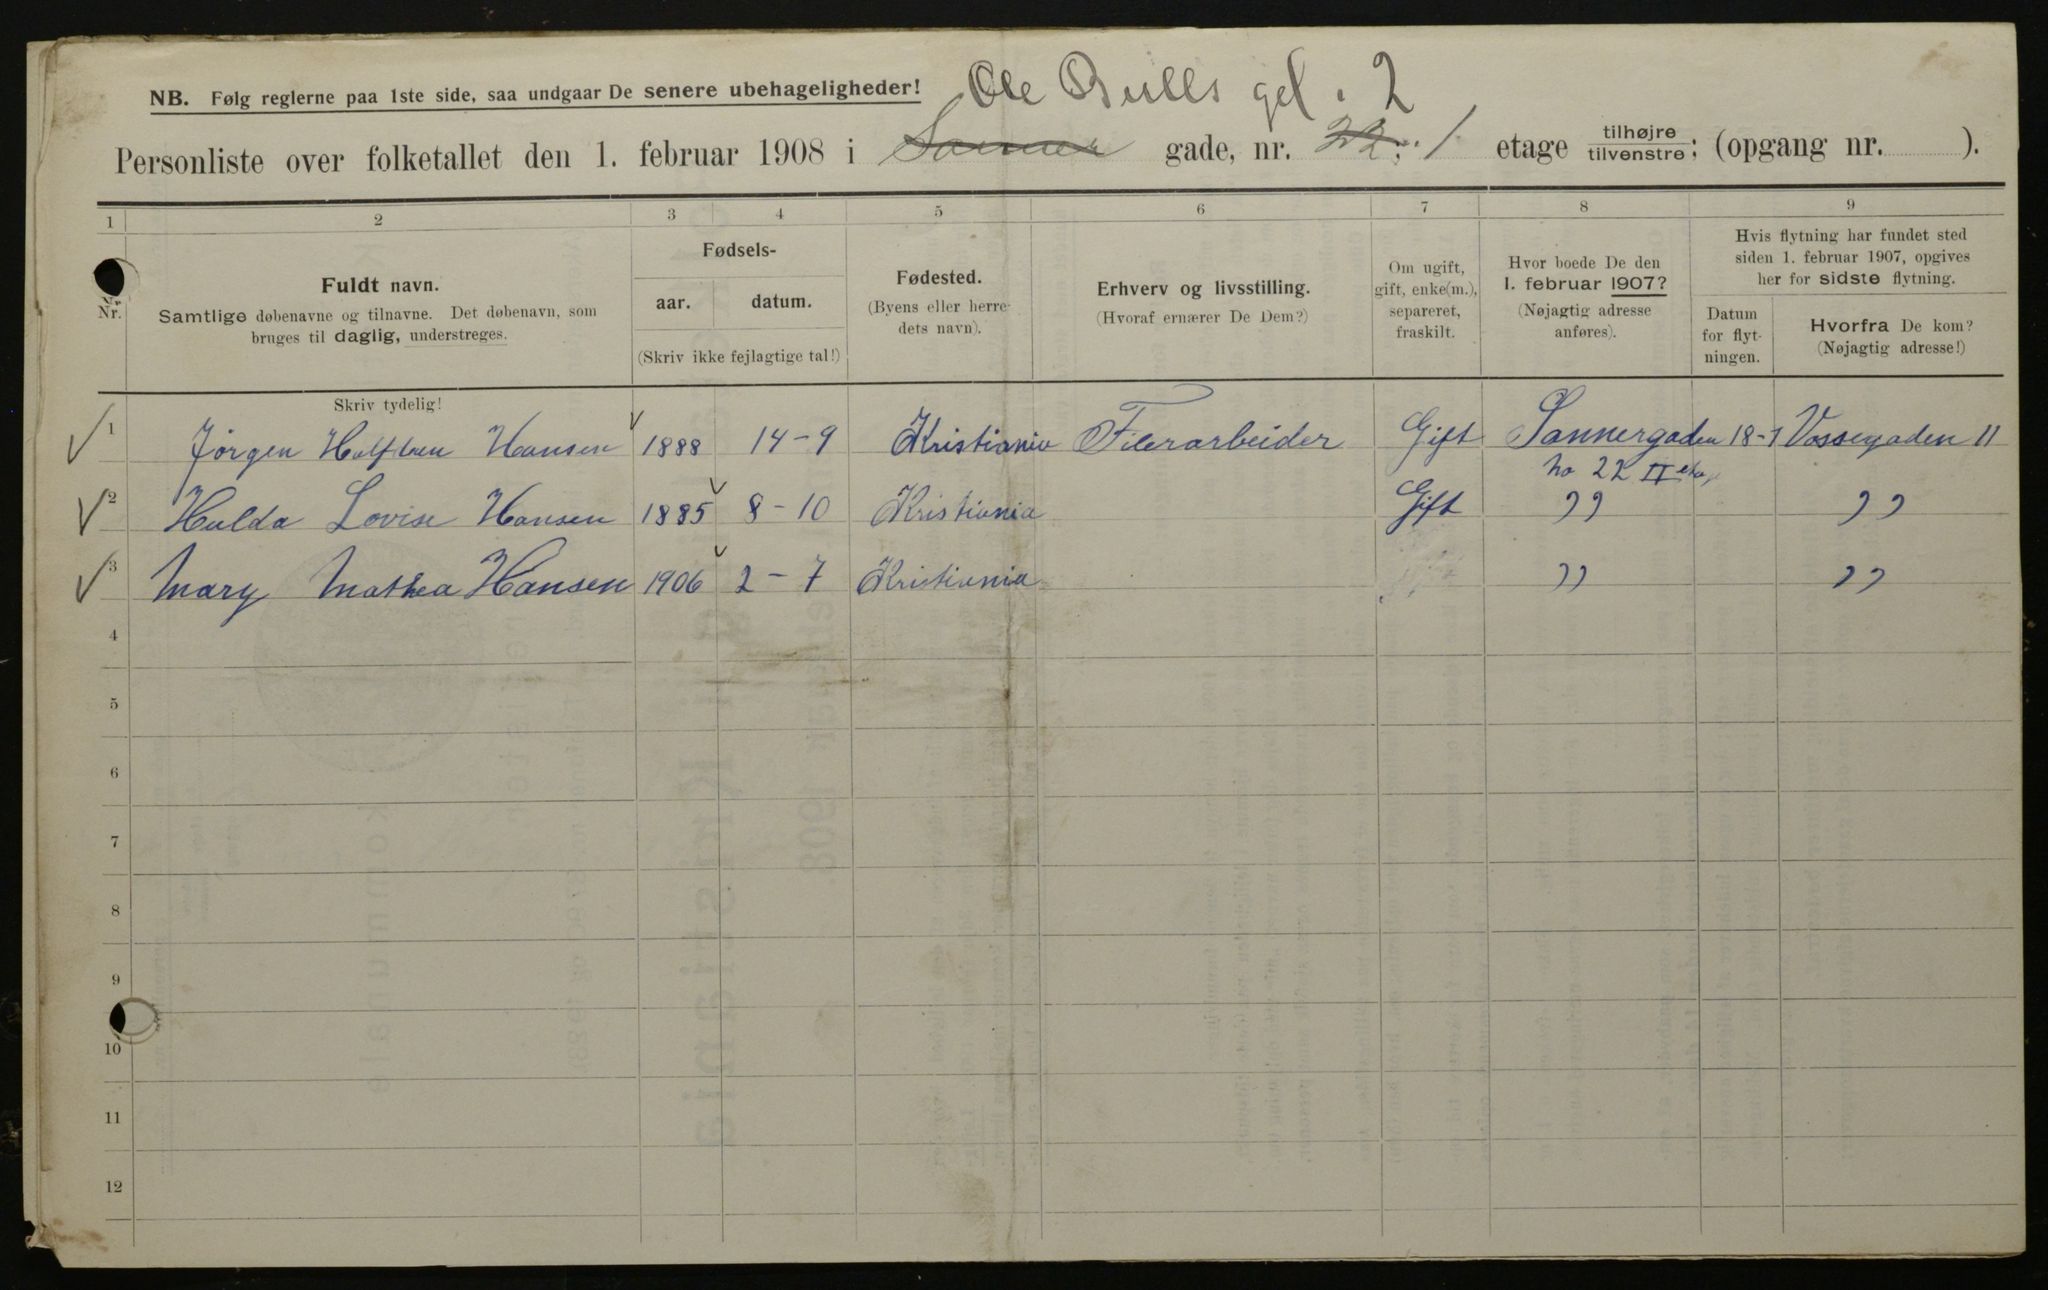 Ole Bulls gd. 2
NB. Følg reglerne paa 1ste side, saa undgaar De senere ubehageligheder!
Personliste over folketallet den 1. februar 1908 i Sanner gade, nr. 22. 1 etage tilhøjre tilvenstre; (opgang nr. ).
1 2 3 4 5 6 7 8 9
Nr.
Fuldt navn.
Samtlige døbenavne og tilnavne. Det døbenavn, som
bruges til daglig, understreges.
Fødsels-
aar. datum.
(Skriv ikke fejlagtige tal!)
Fødested.
(Byens eller herre-
dets navn).
Erhverv og livsstilling.
(Hvoraf ernærer De Dem?)
Om ugift,
gift, enke(m.),
separeret,
fraskilt.
Hvor boede De den
1. februar 1907?
(Nøjagtig adresse
anføres).
Hvis flytning har fundet sted
siden 1. februar 1907, opgives
her for sidste flytning.
Datum
for flyt-
ningen.
Hvorfra De kom?
(Nøjagtig adresse!)
Skriv tydelig!
1 Jørgen Halfdan Hansen 1888 14-9 Kristiania Filerarbeider Gift Sannergaden 18-7 Vossegaden 11
no 22 II etag
2 Hulda Lovise Hansen 1885 8-10 Kristiania Gift " "
3 Mary Mathea Hansen 1906 2-7 Kristiania " "
4
5
6
7
8
9
10
11
12